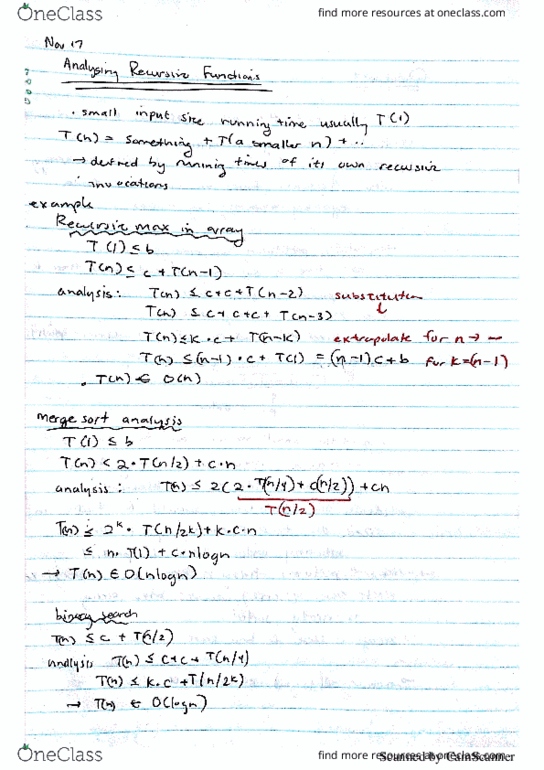 OneClass find more resources at oneclass.com
Nov 17
Analysing Recursive Functions
. small input size running time usually T(1)
T(n) = something + T(a smaller n) + ..
→ defined by running times of its own recursive
invocations
example
Recursive max in array
T(1) ≤ b
T(n) ≤ c + T(n-1)
analysis: T(n) ≤ c+c+T(n-2) substitution
T(n) ≤ c+c+c+T(n-3) ↓
T(n) ≤ k·c + T(n-k) extrapolate for n → ∞
T(n) ≤ (n-1)·c + T(1) = (n-1)c+b for k=(n-1)
. T(n) ∈ O(n)
merge sort analysis
T(1) ≤ b
T(n) < 2·T(n/2) + c·n
analysis: T(n) ≤ 2(2·T(n/4) + c(n/2)) + cn
T(n/2)
T(n) ≤ 2^k · T(n/2k) + k·c·n
≤ n·T(1) + c·nlogn
→ T(n) ∈ O(nlogn)
binary search
T(n) ≤ c + T(n/2)
analysis T(n) ≤ c+c+T(n/4)
T(n) ≤ k·c + T(n/2k)
→ T(n) ∈ O(logn)
OneClass find more resources at oneclass.com
Scanned by CamScanner